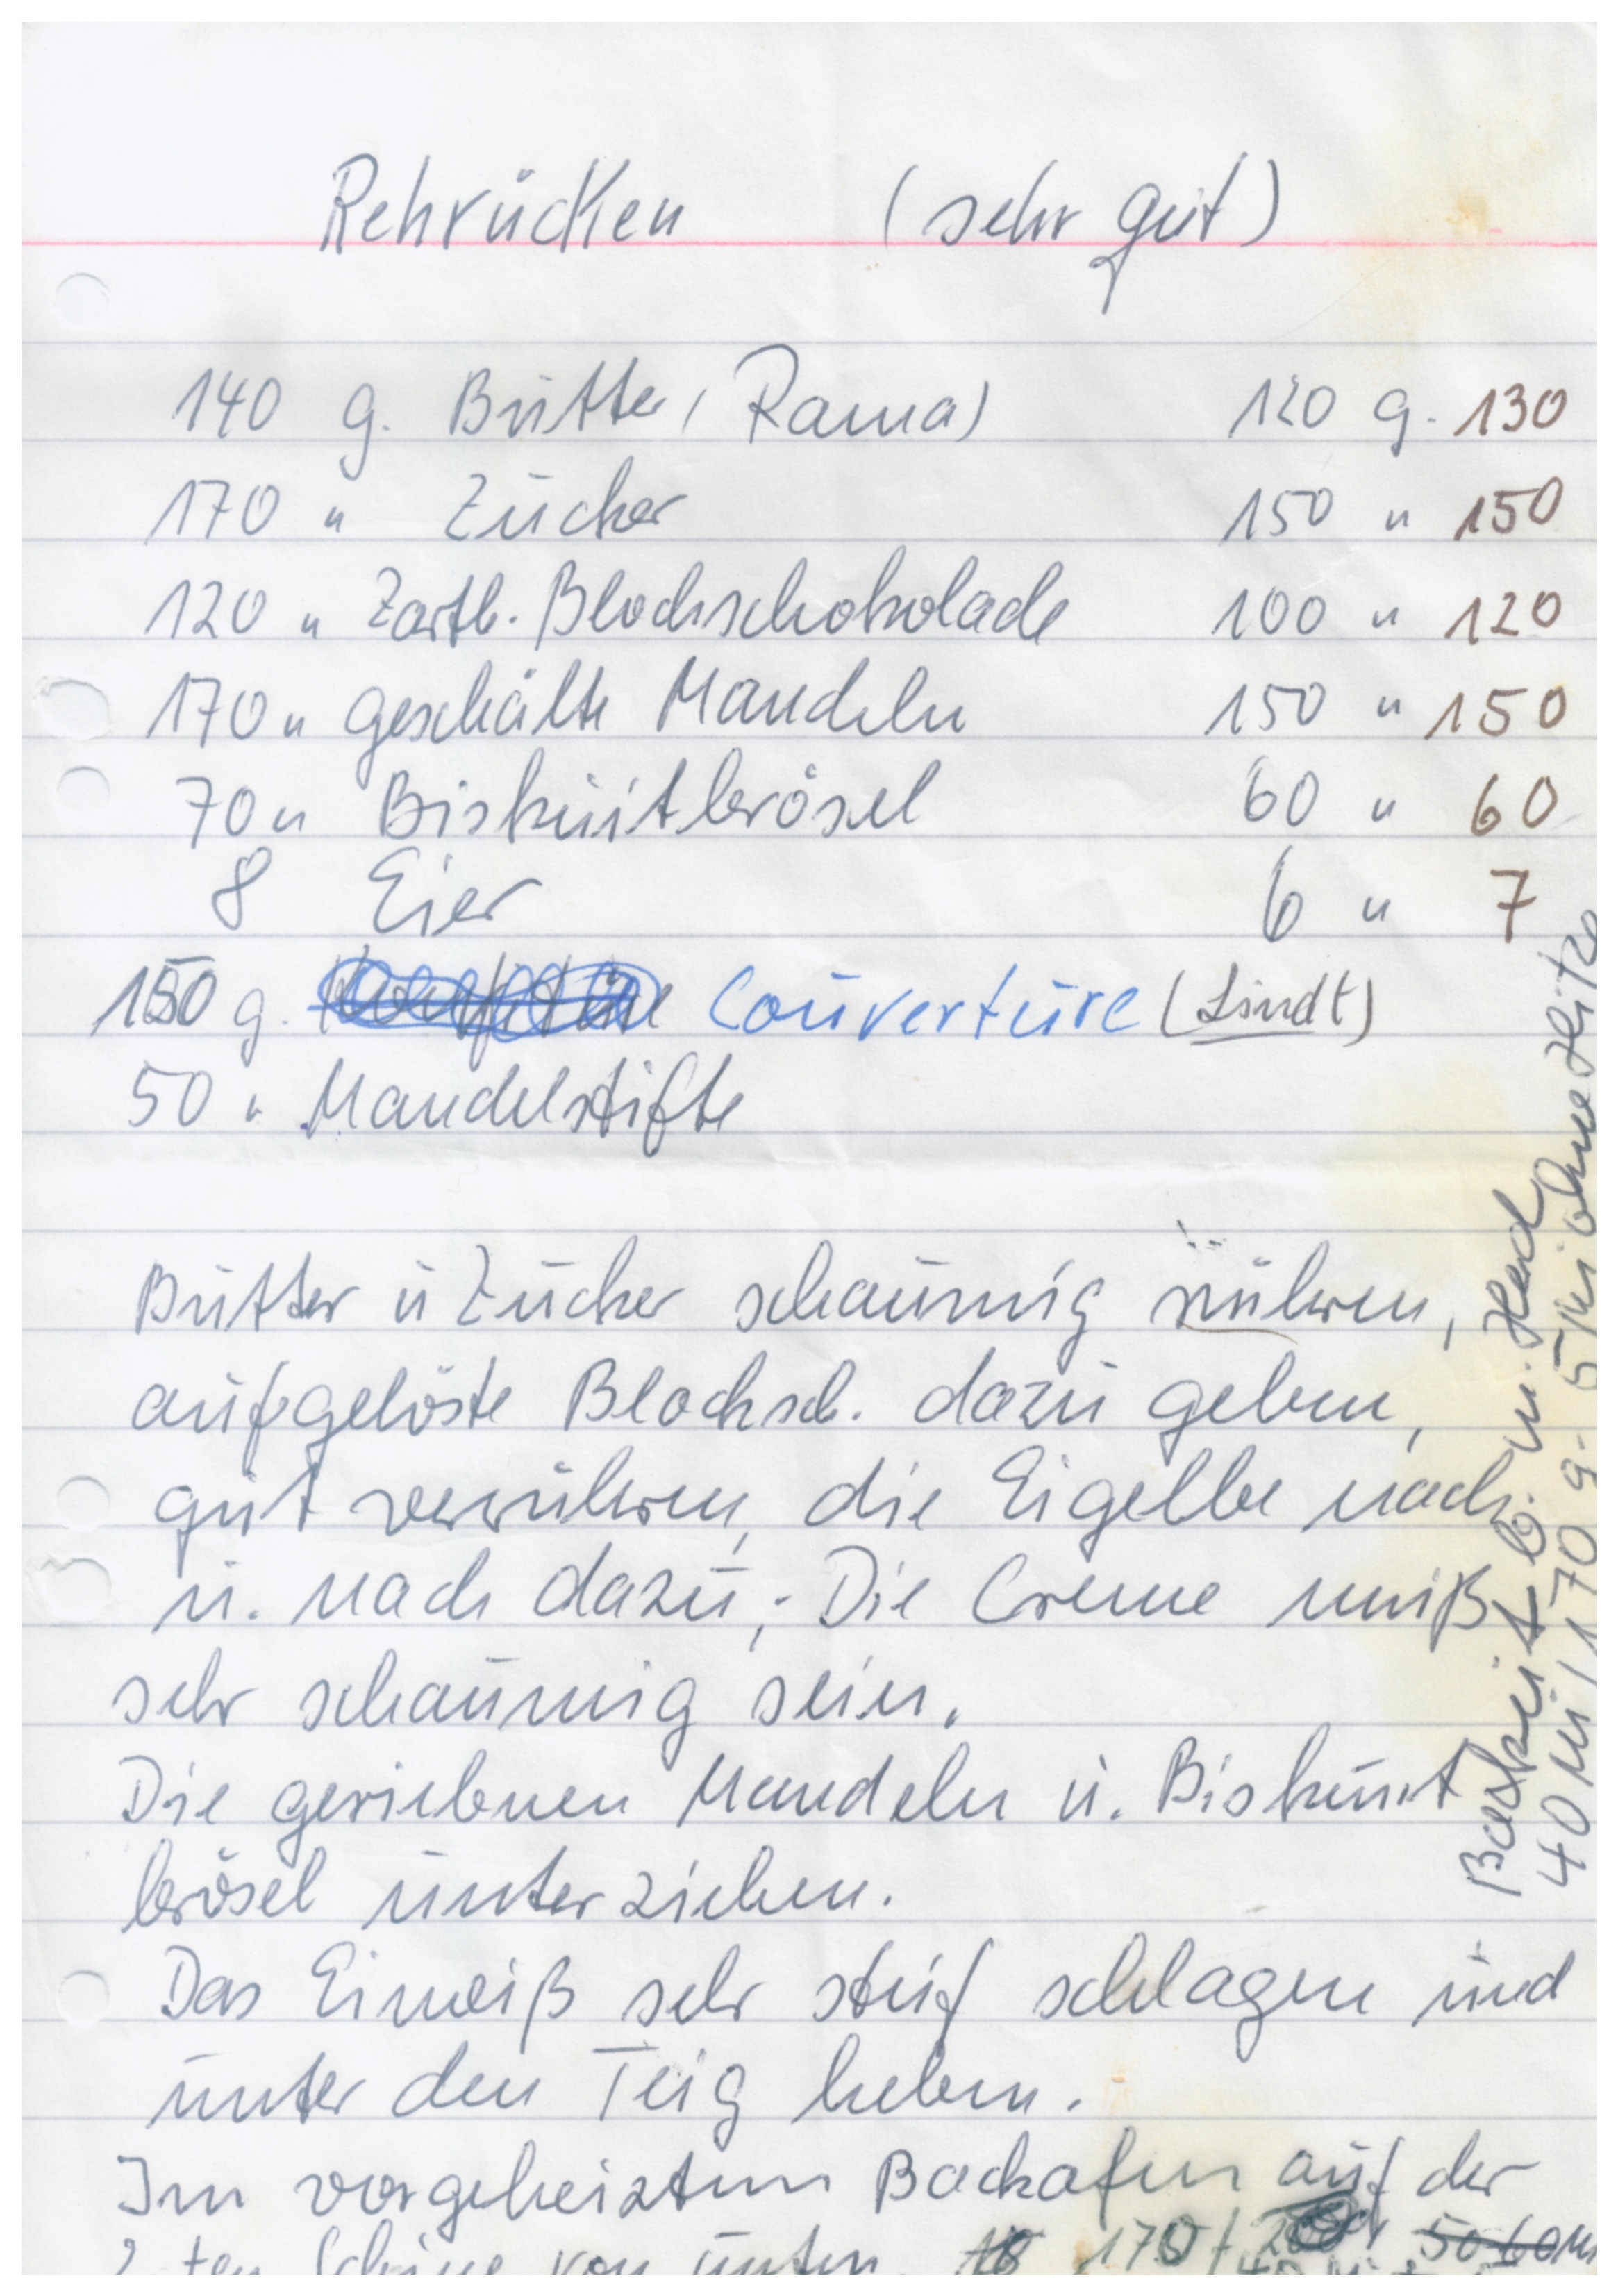 Rehrücken (sehr gut)
140 g. Butter (Rama) 120 g. 130
170 " Zucker 150 " 150
120 " Zartb. Blockschokolade 100 " 120
170 " geschälte Mandeln 150 " 150
70 " Biskuitbrösel 60 " 60
8 Eier 6 " 7
150 g. Couverture (Lindt)
50 " Mandelstifte
Butter u Zucker schaumig rühren,
aufgelöste Blocksch. dazu geben,
gut verrühren, die Eigelbe nach
u. nach dazu,. Die Creme muß
sehr schaumig sein.
Die geriebenen Mandeln u. Biskuit
brösel unterziehen.
Das Eiweiß sehr steif schlagen und
unter den Teig heben.
Im vorgeheiztem Backofen auf der
2 ten Schiene von unten. 170
Backzeit b. m. Herd
40 Mi 170 g. 5 Mi ohne Hitze